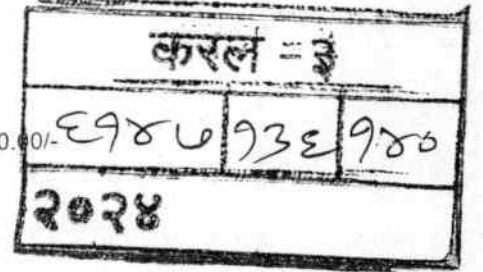 करल - ३
0.00/- ६१४७ १३६ १४०
२०२४